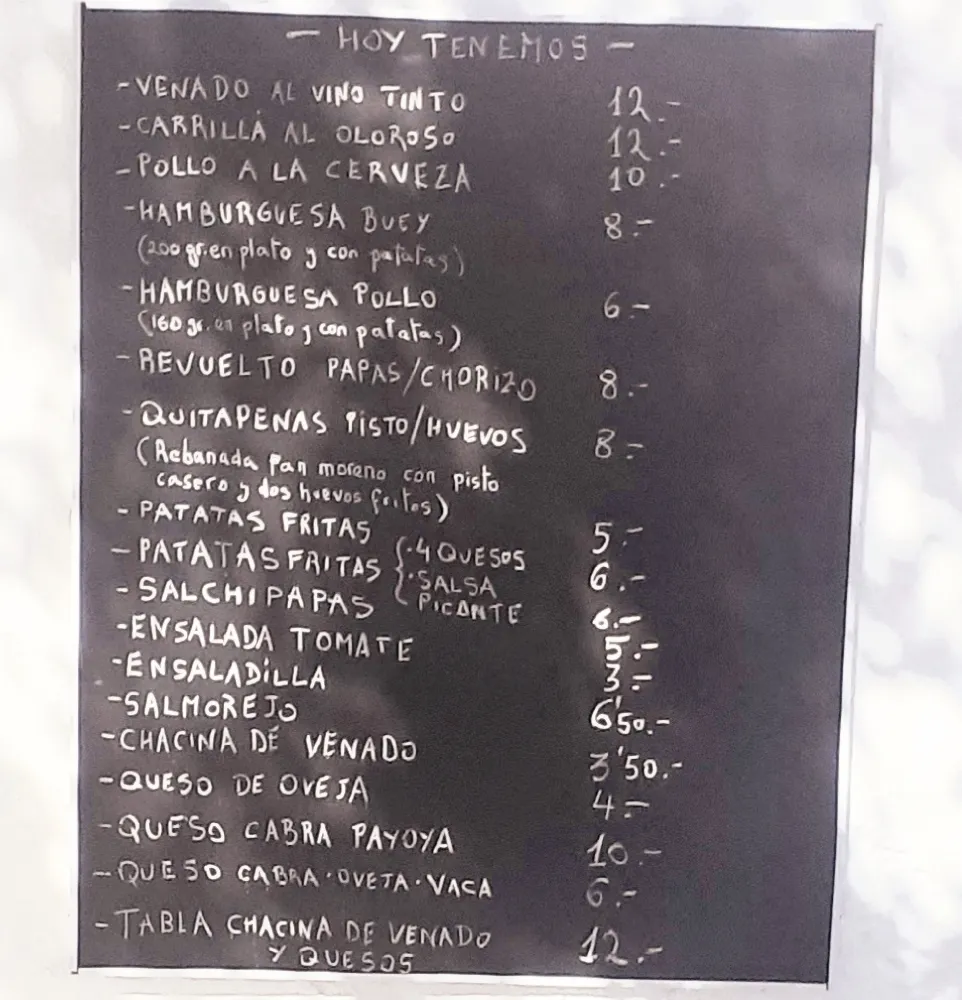 - HOY TENEMOS -
- VENADO AL VINO TINTO 12.-
- CARRILLÁ AL OLOROSO 12.-
- POLLO A LA CERVEZA 10.-
- HAMBURGUESA BUEY 8.-
(200 gr. en plato y con patatas)
- HAMBURGUESA POLLO 6.-
(160 gr. en plato y con patatas)
- REVUELTO PAPAS/CHORIZO 8.-
- QUITAPENAS PISTO/HUEVOS 8.-
(Rebanada Pan moreno con pisto
casero y dos huevos fritos)
- PATATAS FRITAS 5.-
- PATATAS FRITAS { · 4 QUESOS 6.-
· SALSA
PICANTE
- SALCHIPAPAS 6.-
- ENSALADA TOMATE 5.-
- ENSALADILLA 3.-
- SALMOREJO 6'50.-
- CHACINA DE VENADO 3'50.-
- QUESO DE OVEJA 4.-
- QUESO CABRA PAYOYA 10.-
- QUESO CABRA · OVEJA · VACA 6.-
- TABLA CHACINA DE VENADO 12.-
Y QUESOS